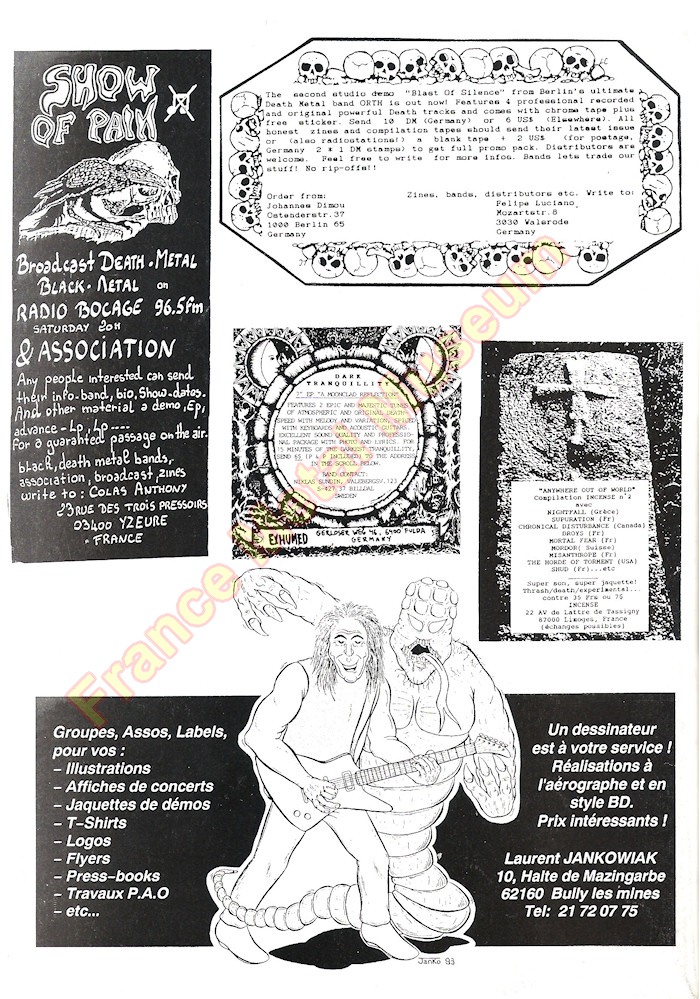 SHOW
OF PAIN
Broadcast DEATH-METAL
BLACK-METAL on
RADIO BOCAGE 96.5fm
SATURDAY 20H
& ASSOCIATION
Any people interested can send
their info-band, bio, show-dates.
And other material a demo, Ep,
advance-Lp, Lp----
for a guaranted passage on the air.
black, death metal bands,
association, broadcast, zines
write to: COLAS ANTHONY
23 RUE DES TROIS PRESSOIRS
03400 YZEURE
- FRANCE
The second studio demo "Blast Of Silence" from Berlin's ultimate
Death Metal band ORTH is out now! Features 4 professional recorded
and original powerful Death tracks and comes with chrome tape plus
free sticker. Send 10 DM (Germany) or 6 US$ (Elsewhere). All
honest zines and compilation tapes should send their latest issue
or (also radiostations!) a blank tape + 2 US$ (for postage,
Germany 2 * 1 DM stamps) to get full promo pack. Distributors are
welcome. Feel free to write for more infos. Bands lets trade our
stuff! No rip-offs!!
Order from:
Johannes Dimou
Ostenderstr.37
1000 Berlin 65
Germany
Zines, bands, distributors etc. Write to:
Felipe Luciano
Mozartstr.8
3030 Walsrode
Germany
DARK
TRANQUILLITY
7" EP "A MOONCLAD REFLECTION"
FEATURES 2 EPIC AND MAJESTIC TUNES
OF ATMOSPHERIC AND ORIGINAL DEATH-
SPEED WITH MELODY AND VARIATION, SPICED
WITH KEYBOARDS AND ACOUSTIC GUITARS.
EXCELLENT SOUND QUALITY AND PROFESSIO-
NAL PACKAGE WITH PHOTO AND LYRICS. FOR
15 MINUTES OF THE DARKEST TRANQUILLITY,
SEND $5 (P & P INCLUDED) TO THE ADDRESS
IN THE SCROLL BELOW.
BAND CONTACT:
NIKLAS SUNDIN, VALEBERGSV.123
S-427 37 BILLDAL
SWEDEN
EXHUMED
GERLOSER WEG 46, 6400 FULDA
GERMANY
"ANYWHERE OUT OF WORLD"
Compilation INCENSE n°2
avec
NIGHTFALL (Grèce)
SUPURATION (Fr)
CHRONICAL DISTURBANCE (Canada)
DROYS (Fr)
MORTAL FEAR (Fr)
MORDOR( Suisse)
MISANTHROPE (Fr)
THE HORDE OF TORMENT (USA)
SHUD (Fr)...etc
Super son, super jaquette!
Thrash/death/experimental...
contre 35 Frs ou 7$
INCENSE
22 AV de Lattre de Tassigny
87000 Limoges, France
(échanges possibles)
Groupes, Assos, Labels,
pour vos :
– Illustrations
– Affiches de concerts
– Jaquettes de démos
– T–Shirts
– Logos
– Flyers
– Press–books
– Travaux P.A.O
– etc...
Un dessinateur
est à votre service !
Réalisations à
l'aérographe et en
style BD.
Prix intéressants !
Laurent JANKOWIAK
10, Halte de Mazingarbe
62160 Bully les mines
Tel: 21 72 07 75
JanKo 93
France Metal Museum